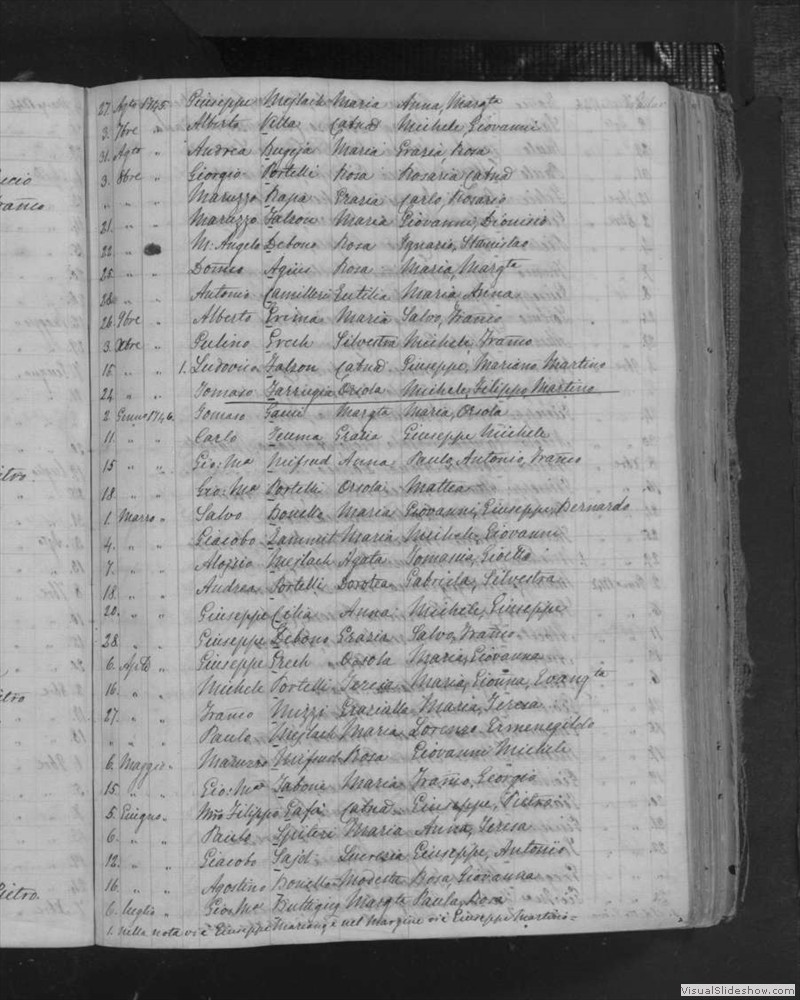 27. Agto 1745 Giuseppe Mejlach Maria Anna, Margta
3. 7bre " Alberto Vella Catnd Michele Giovanni
31. Agto " Andrea Bugeja Maria Grazia, Rosa
3. 8bre " Giorgio Portelli Rosa Rosaria Catnd
" " " Maruzzo Rapa Grazia Carlo, Rosario
21. " " Maruzzo Falzon Maria Giovanni, Dionisio
22. " " M. Angelo Debono Rosa Ignazio, Stanislao
25. " " Domco Agius Rosa Maria, Margta
28. " " Antonio Camilleri Eutilia Maria Anna
26. 9bre " Alberto Grima Maria Salvo, Franco
3. Xbre " Pulino Grech Silvestra Michele, Franco
15 " " 1. Ludovico Falzon Catnd Giuseppe, Mariano Martino
24 " " Tomaso Farrugia Orsola Michele, Filippo Martino
2 Genno 1746. Tomaso Gauci Margta Maria, Orsola
11. " " Carlo Teuma Grazia Giuseppe Michele
15 " " Gio: Ma Mifsud Anna Paulo, Antonio, Franco
18. " " Gio: Ma Portelli Orsola Mattea
1. Marzo " Salvo Bonello Maria Giovanni, Giuseppe, Bernardo
4. " " Giacobo Zammit Maria Michele, Giovanni
7. " " Aloisio Mejlach Agata Tomasia,
18. " " Andrea Portelli Dorotea Gabriela, Silvestra
20. " " Giuseppe Cilia Anna Michele, Giuseppe
28. " " Giuseppe Debono Grazia Salvo, Franco
6. Aple " Giuseppe Grech Orsola Maria, Giovanna
16. " " Michele Portelli Teresa Maria, Gionna, Evangta
27. " " Franco Mizzi Graziulla Maria, Teresa
" " " Paulo Mejlach Maria Lorenzo Ermenegildo
6. Maggio " Maruzzo Mifsud Rosa Giovanni Michele
15 " " Gio: Ma Tabone Maria Franco, Giorgio
5. Giugno " Mro Filippo Cafa Catnd Giuseppe, Pietro
6. " " Paulo Spiteri Maria Anna, Teresa
12. " " Giacobo Said Lucrezia Giuseppe, Antonio
16. " " Agostino Bonello Modesta Rosa, Giovanna
6. Luglio " Gio: Ma Buttigieg Margta Paula, Rosa
1. Nella nota vi è Giuseppe Mariano, e nel Margine vi è Giuseppe Martino =
ucio
ranco
etro.
ietro
Pietro.
VisualSlideshow.com